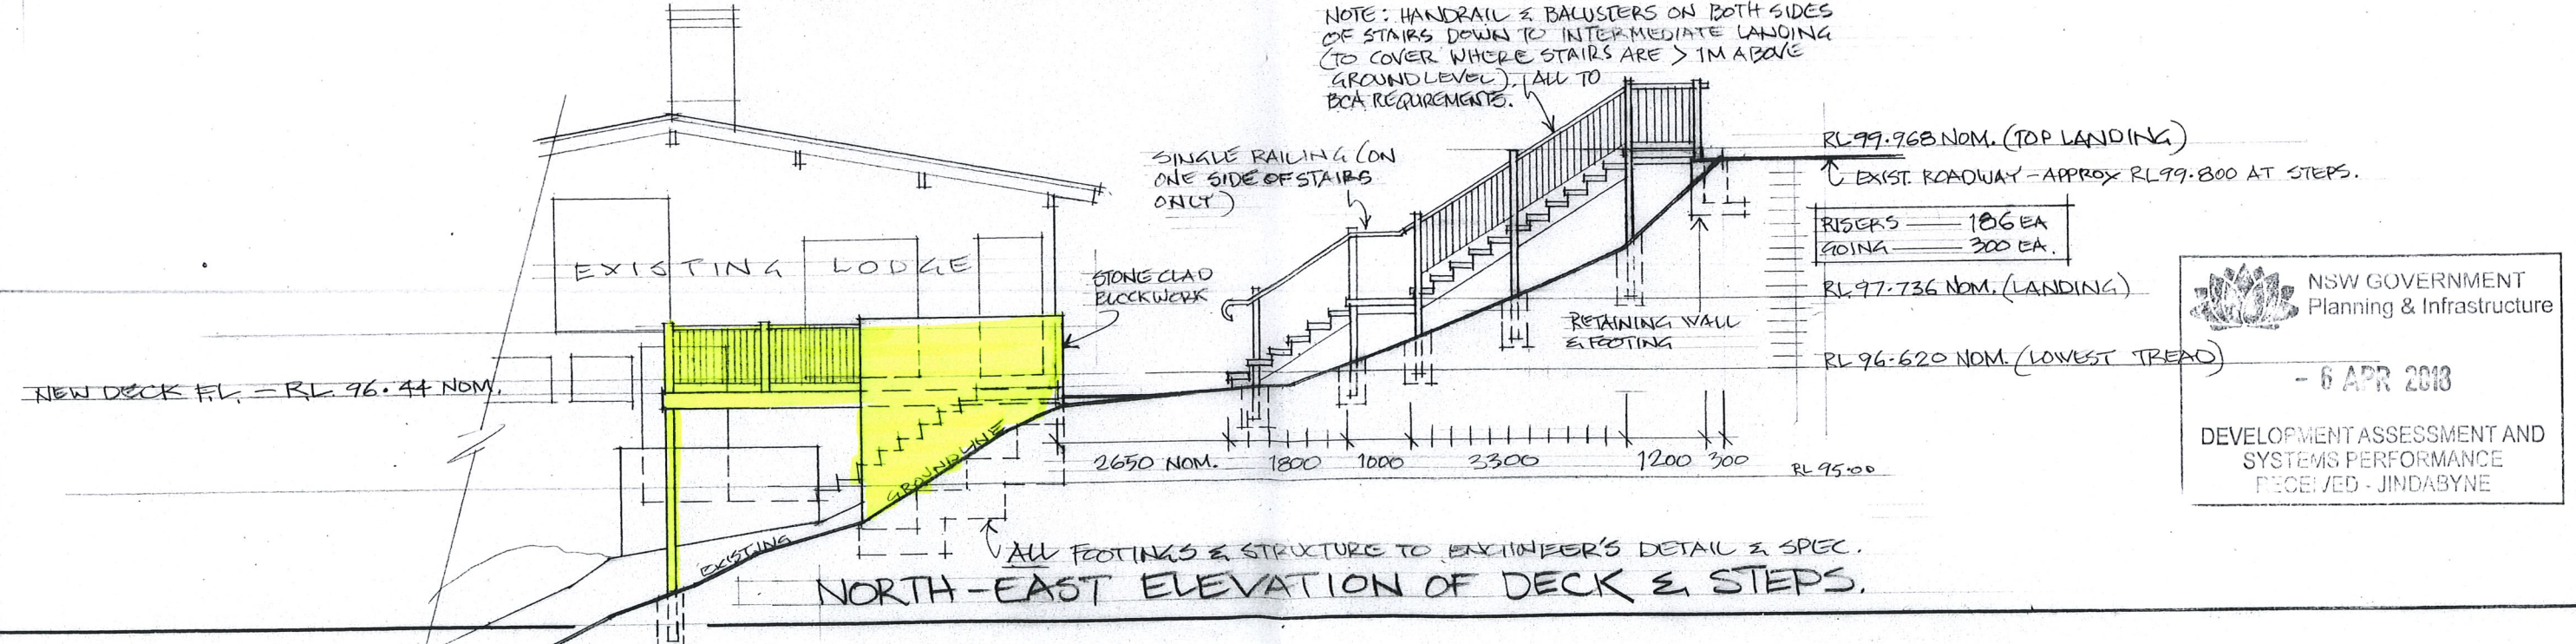 NOTE: HANDRAIL & BALUSTERS ON BOTH SIDES
OF STAIRS DOWN TO INTERMEDIATE LANDING
(TO COVER WHERE STAIRS ARE > 1M ABOVE
GROUND LEVEL). (ALL TO
BCA REQUREMENTS.
SINGLE RAILING (ON
ONE SIDE OF STAIRS
ONLY)
RL 99.968 NOM. (TOP LANDING)
EXIST. ROADWAY - APPROX RL 99.800 AT STEPS.
RISERS — 186 EA
GOING — 300 EA.
RL 97.736 NOM. (LANDING)
RL 96.620 NOM. (LOWEST TREAD)
EXISTING LODGE
STONE CLAD
BLOCKWORK
RETAINING WALL
& FOOTING
NEW DECK F.L. - RL 96.44 NOM.
2650 NOM. 1800 1000 3300 1200 300
RL 95.00
EXISTING GROUND LINE
ALL FOOTINGS & STRUCTURE TO ENGINEER'S DETAIL & SPEC.
NORTH-EAST ELEVATION OF DECK & STEPS.
NSW GOVERNMENT
Planning & Infrastructure
- 6 APR 2018
DEVELOPMENT ASSESSMENT AND
SYSTEMS PERFORMANCE
RECEIVED - JINDABYNE